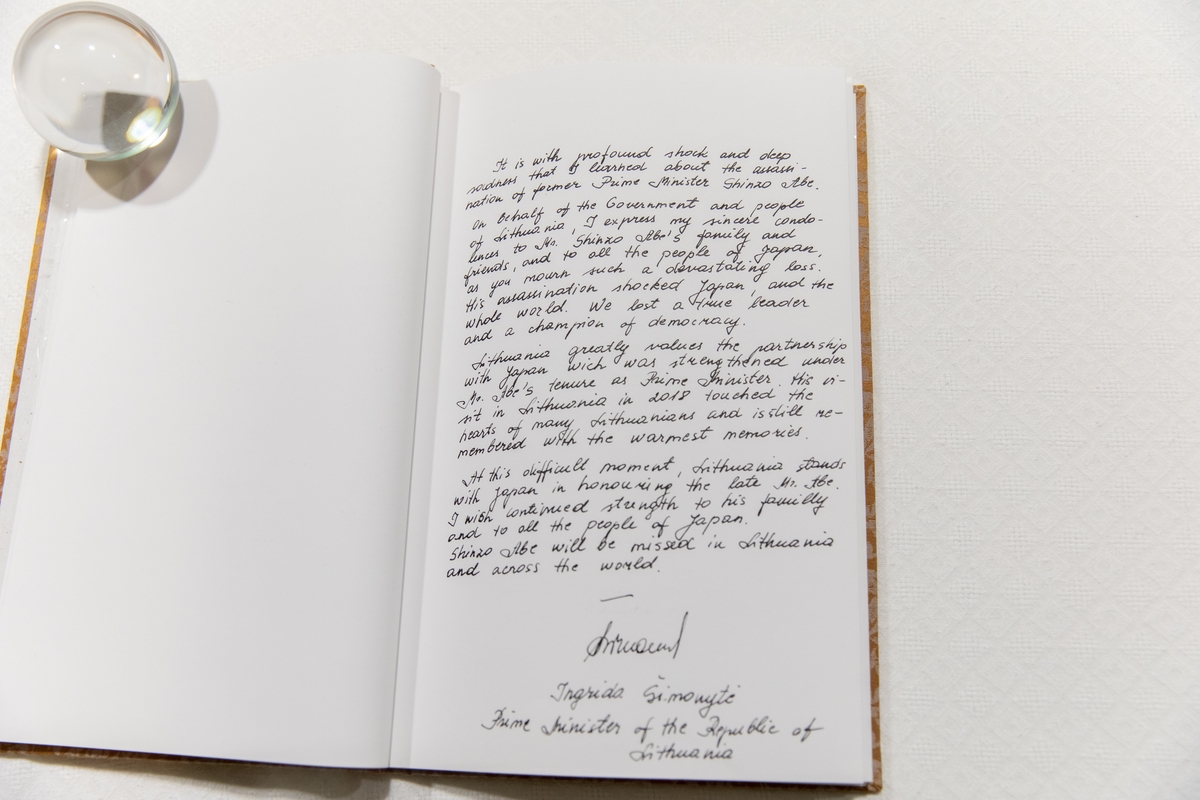 It is with profound shock and deep
sadness that I learned about the assassi-
nation of former Prime Minister Shinzo Abe.
On behalf of the Government and people
of Lithuania, I express my sincere condo-
lences to Mr. Shinzo Abe's family and
friends, and to all the people of Japan,
as you mourn such a devastating loss.
His assassination shocked Japan, and the
whole world. We lost a true leader
and a champion of democracy.
Lithuania greatly values the partnership
with Japan wich was strengthened under
Mr. Abe's tenure as Prime Minister. His vi-
sit in Lithuania in 2018 touched the
hearts of many Lithuanians and is still re-
membered with the warmest memories.
At this difficult moment, Lithuania stands
with Japan in honouring the late Mr. Abe.
I wish continued strength to his familly
and to all the people of Japan.
Shinzo Abe will be missed in Lithuania
and across the world.
Ingrida Šimonytė
Prime Minister of the Republic of
Lithuania